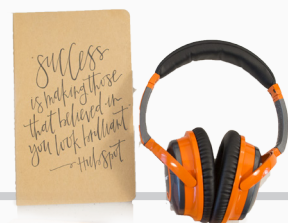 "Success
is making those
that believed in
you look brilliant"
- HubSpot